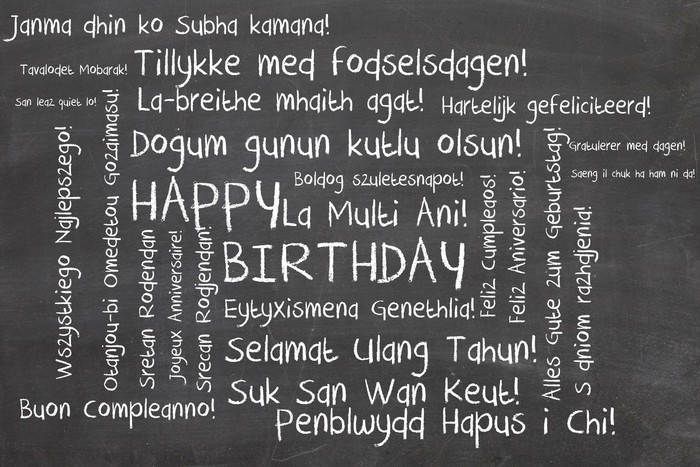 Janma dhin ko Subha kamana!
Tavalodet Mobarak!
Tillykke med fodselsdagen!
San leaz quiet lo!
La-breithe mhaith agat!
Hartelijk gefeliciteerd!
Dogum gunun kutlu olsun!
Gratulerer med dagen!
Boldog szuletesnapot!
Saeng il chuk ha ham ni da!
HAPPY
La Multi Ani!
BIRTHDAY
Eytyxismena Genethlia!
Selamat Ulang Tahun!
Suk San Wan Keut!
Buon Compleanno!
Penblwydd Hapus i Chi!
Wszystkiego Najlepszego!
Otanjou-bi Omedetou Gozaimasu!
Sretan Rodendan
Joyeux Anniversaire!
Srecan Rodjendan!
Feliz Cumpleaos!
Feliz Aniversario!
Alles Gute zum Geburtstag!
S dniom razhdjenia!